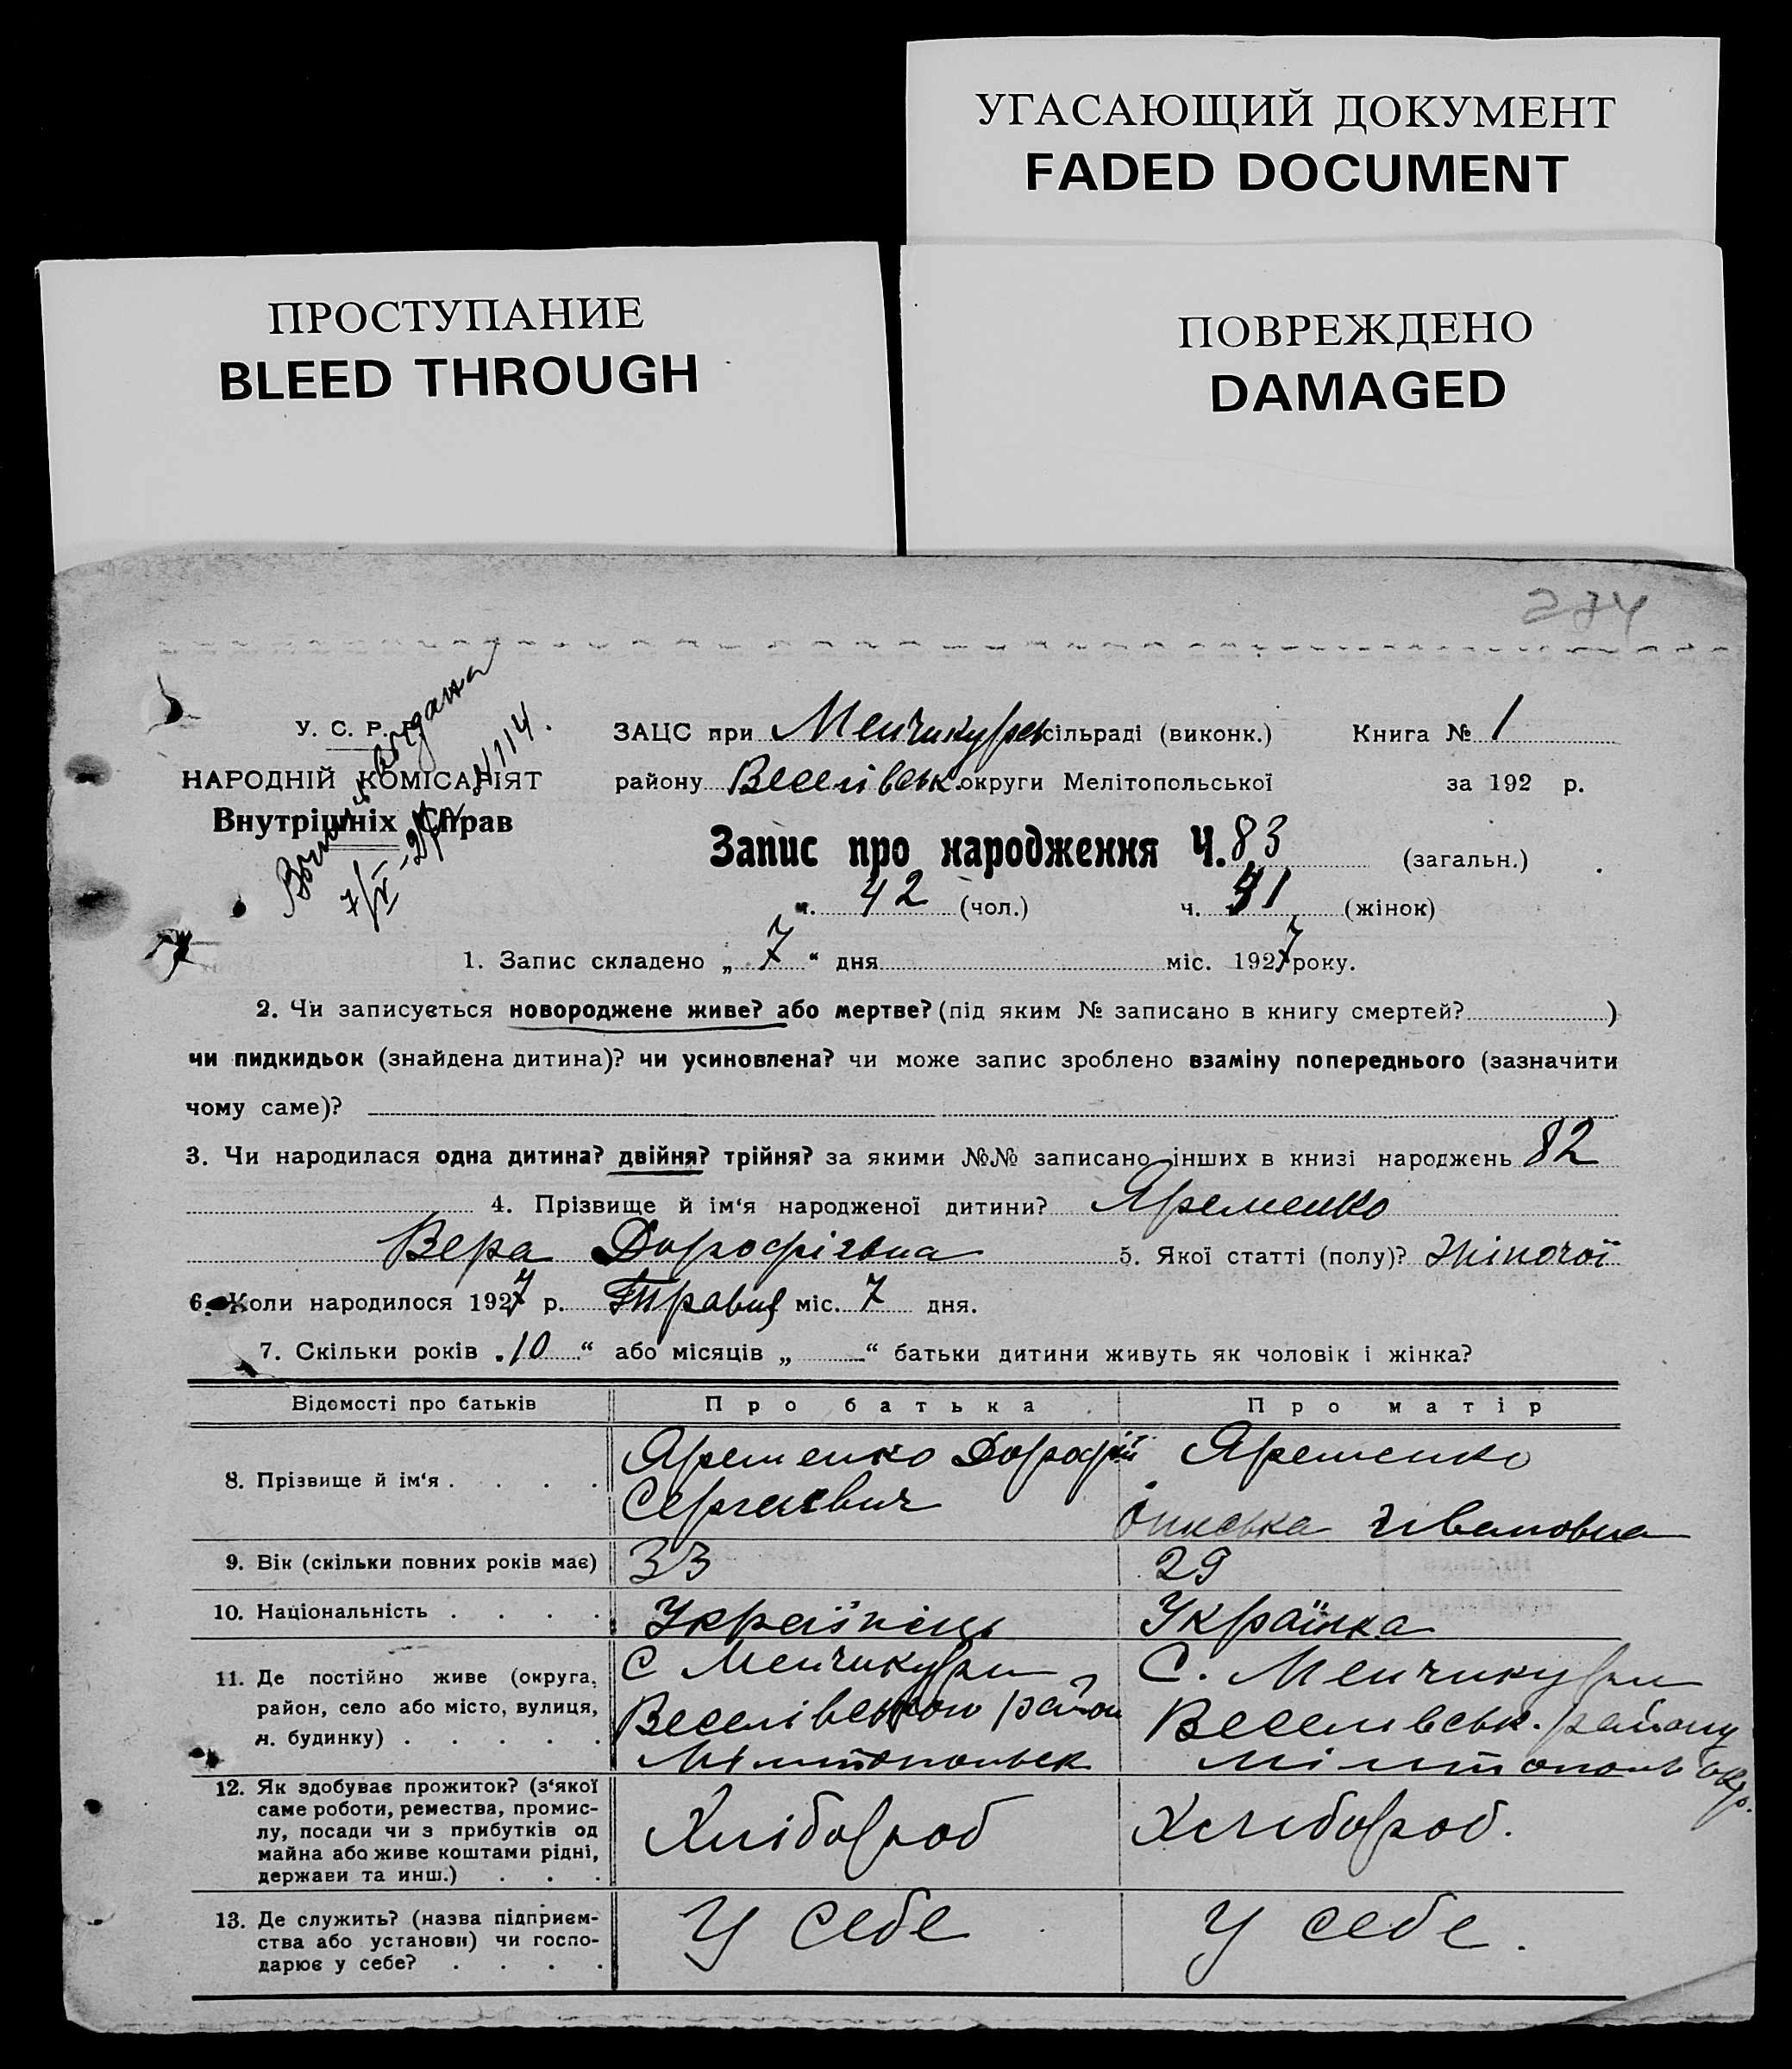 УГАСАЮЩИЙ ДОКУМЕНТ
FADED DOCUMENT
ПРОСТУПАНИЕ
BLEED THROUGH
ПОВРЕЖДЕНО
DAMAGED
274
У. С. Р. Р.
НАРОДНІЙ КОМІСАРІЯТ
Внутрішніх Справ
видана
ЗАЦС при Менчикурсільраді (виконк.) Книга № 1
району Веселівськ. округи Мелітопольської за 192 р.
Запис про народження Ч. 83 (загальн.)
ч. 42 (чол.) ч. 41 (жінок)
1. Запис складено „ 7 “ дня міс. 1927 року.
2. Чи записується новороджене живе? або мертве? (під яким № записано в книгу смертей? )
чи пидкидьок (знайдена дитина)? чи усиновлена? чи може запис зроблено взаміну попереднього (зазначити
чому саме)?
3. Чи народилася одна дитина? двійня? трійня? за якими №№ записано інших в книзі народжень 82
4. Прізвище й ім‘я народженої дитини? Яременко
Вера Дорофієвна 5. Якої статті (полу)? Жіночої
6. Коли народилося 1927 р. Травня міс. 7 дня.
7. Скільки років „ 10 “ або місяців „ “ батьки дитини живуть як чоловік і жінка?
Відомості про батьків Про батька Про матір
8. Прізвище й ім‘я . . . . Яременко Дорофій Яременко
Сергаєвич Ивановна
9. Вік (скільки повних років має) 33 29
10. Національність . . . . Українець Українка
11. Де постійно живе (округа, С Менчикури С. Менчикури
район, село або місто, вулиця, Веселівського район Веселівськ. району
н. будинку) . . . . . Мілітопольск Мілітополь окр.
12. Як здобуває прожиток? (з‘якої
саме роботи, ремества, промис-
лу, посади чи з прибутків од Хлібороб Хлибороб.
майна або живе коштами рідні,
держави та инш.) . . .
13. Де служить? (назва підприєм- У себе У себе.
ства або установи) чи госпо-
дарює у себе? . . . .